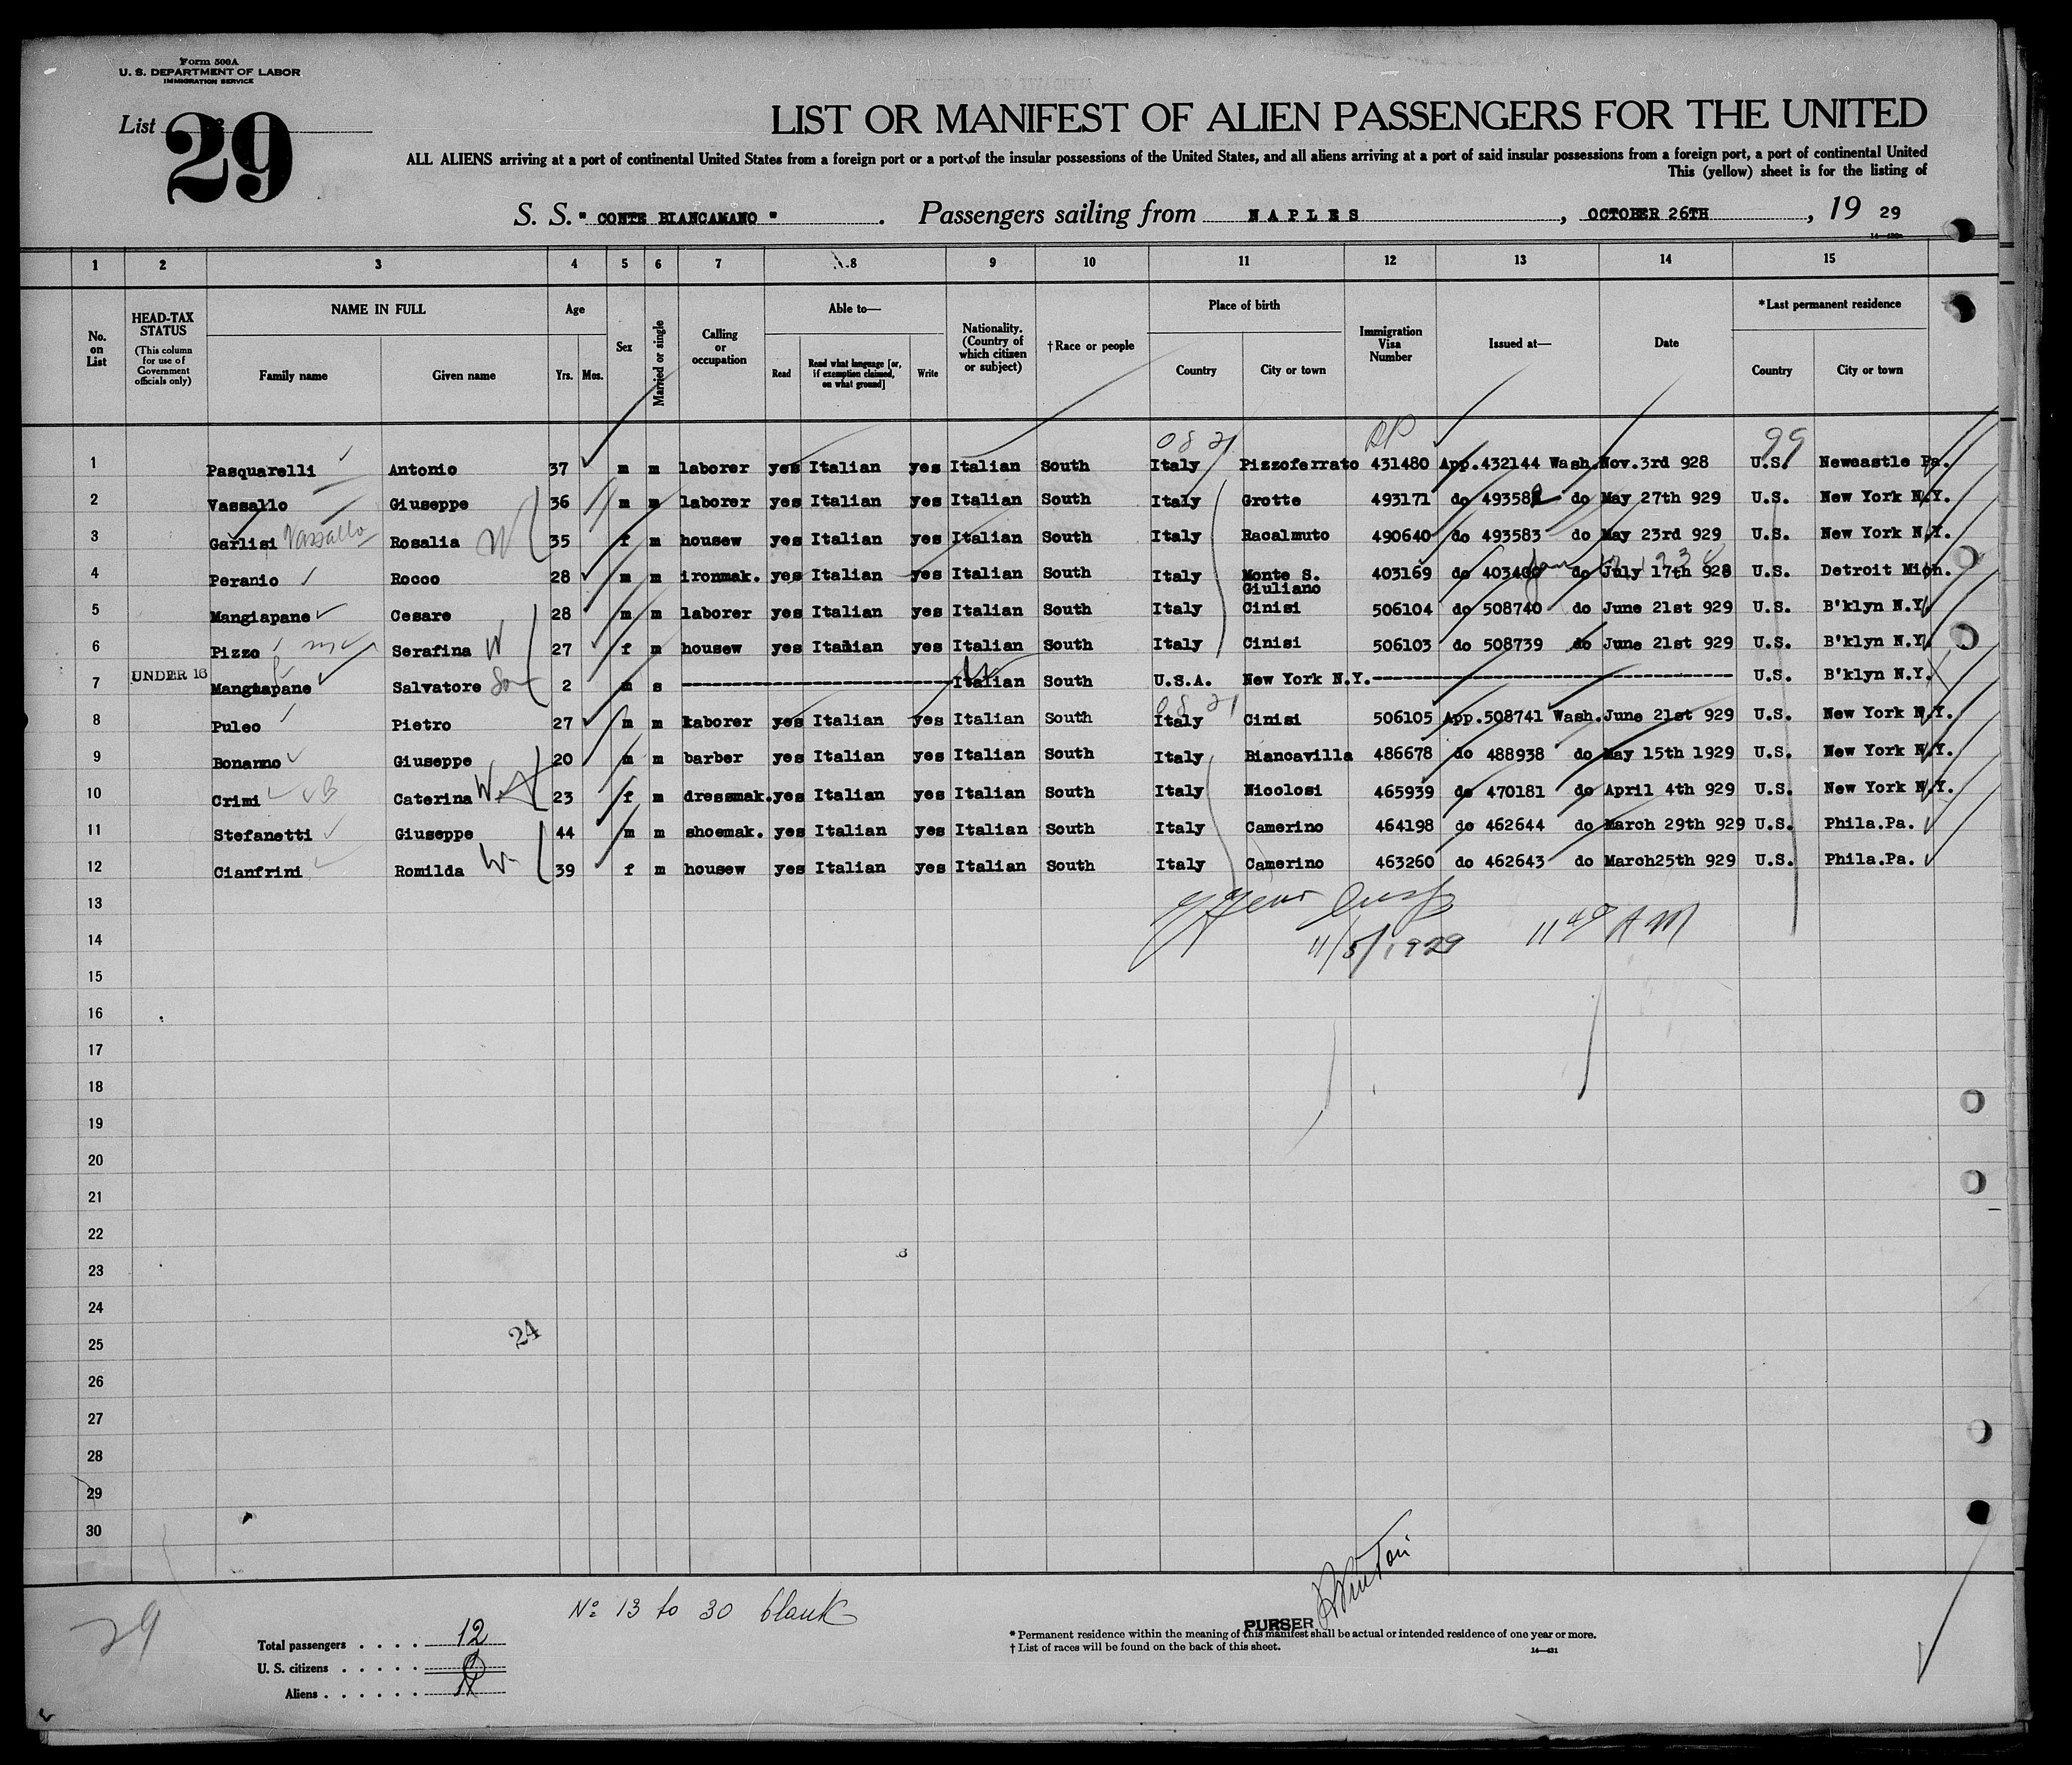 Form 500A
U. S. DEPARTMENT OF LABOR
IMMIGRATION SERVICE
List 29
LIST OR MANIFEST OF ALIEN PASSENGERS FOR THE UNITED
ALL ALIENS arriving at a port of continental United States from a foreign port or a port of the insular possessions of the United States, and all aliens arriving at a port of said insular possessions from a foreign port, a port of continental United
This (yellow) sheet is for the listing of
S. S. " CONTE BIANCAMANO " . Passengers sailing from NAPLES , OCTOBER 26TH , 19 29
1 2 3 4 5 6 7 8 9 10 11 12 13 14 15
No. on List
HEAD-TAX STATUS (This column for use of Government officials only)
NAME IN FULL Family name Given name
Age Yrs. Mos.
Sex
Married or single
Calling or occupation
Able to— Read Read what language [or, if exemption claimed, on what ground] Write
Nationality. (Country of which citizen or subject)
†Race or people
Place of birth Country City or town
Immigration Visa Number
Issued at—
Date
*Last permanent residence Country City or town
08 21 99
1 Pasquarelli Antonio 37 m m laborer yes Italian yes Italian South Italy Pizzoferrato 431480 App.432144 Wash. Nov.3rd 928 U.S. Newcastle Pa.
2 Vassallo Giuseppe 36 m m laborer yes Italian yes Italian South Italy Grotte 493171 do 493582 do May 27th 929 U.S. New York N.Y.
3 Garlisi Vassallo Rosalia W 35 f m housew yes Italian yes Italian South Italy Racalmuto 490640 do 493583 do May 23rd 929 U.S. New York N.Y.
4 Peranio Rocco 28 m m ironmak. yes Italian yes Italian South Italy Monte S. Giuliano 403169 do 403400 do July 17th 928 U.S. Detroit Mich.
5 Mangiapane Cesare 28 m m laborer yes Italian yes Italian South Italy Cinisi 506104 do 508740 do June 21st 929 U.S. B'klyn N.Y.
6 Pizzo Serafina W 27 f m housew yes Italian yes Italian South Italy Cinisi 506103 do 508739 do June 21st 929 U.S. B'klyn N.Y.
7 UNDER 16 Mangiapane Salvatore Son 2 m s Italian South U.S.A. New York N.Y. U.S. B'klyn N.Y.
08 21
8 Puleo Pietro 27 m m laborer yes Italian yes Italian South Italy Cinisi 506105 App.508741 Wash. June 21st 929 U.S. New York N.Y.
9 Bonanno Giuseppe 20 m m barber yes Italian yes Italian South Italy Biancavilla 486678 do 488938 do May 15th 1929 U.S. New York N.Y.
10 Crimi Caterina W 23 f m dressmak. yes Italian yes Italian South Italy Nicolosi 465939 do 470181 do April 4th 929 U.S. New York N.Y.
11 Stefanetti Giuseppe 44 m m shoemak. yes Italian yes Italian South Italy Camerino 464198 do 462644 do March 29th 929 U.S. Phila.Pa.
12 Cianfrini Romilda W 39 f m housew yes Italian yes Italian South Italy Camerino 463260 do 462643 do March25th 929 U.S. Phila.Pa.
13
14 11/5/1929 11 40 AM
15
16
17
18
19
20
21
22
23
24
25 24
26
27
28
29
30
29
Nº 13 to 30 blank
PURSER
Total passengers . . . . 12
U. S. citizens . . . . .
Aliens . . . . . .
* Permanent residence within the meaning of this manifest shall be actual or intended residence of one year or more.
† List of races will be found on the back of this sheet.
14—431